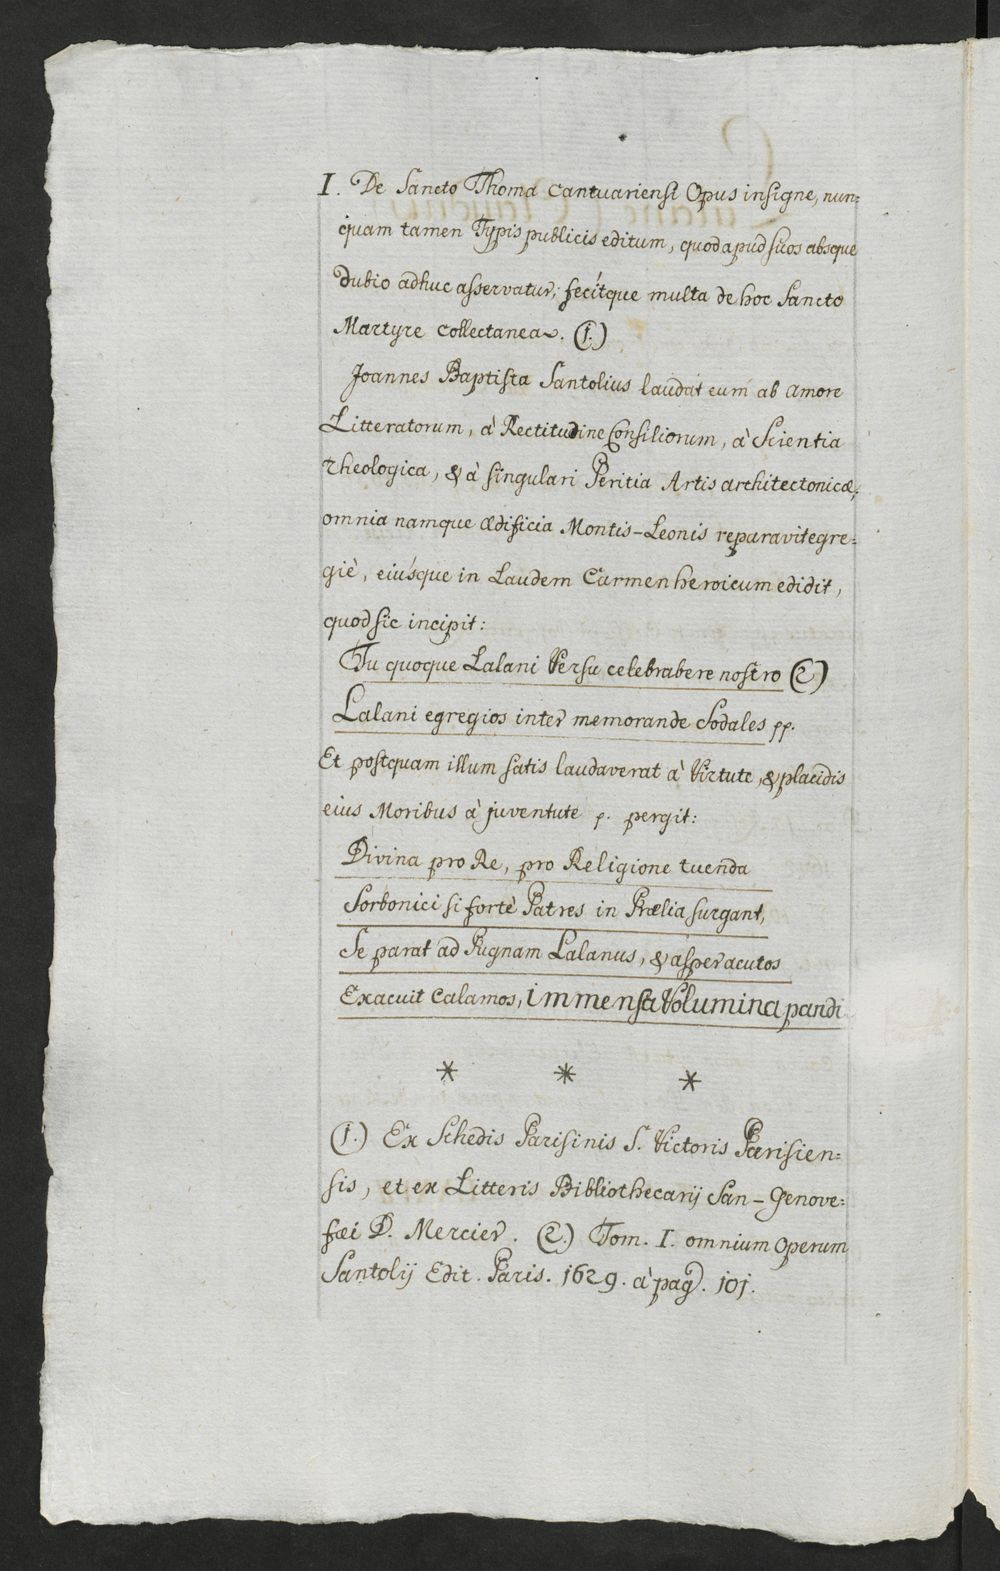 I. De Sancto Thoma Cantuariensi Opus insigne, nun=
quam tamen Typis publicis editum, quod apud suos absque
dubio adhuc asservatur; fecítque multa de hoc Sancto
Martyre collectanea. (1.)
Joannes Baptista Santolius laudat eum ab amore
Litteratorum, à Rectitudine Consiliorum, à Scientia
Theologica, & à singulari Peritia Artis architectonicæ;
omnia namque ædificia Montis-Leonis reparavit egre=
giè, eiúsque in Laudem Carmen heroicum edidit,
quod sic incipit:
Tu quoque Lalani Versu celebrabere nostro (2.)
Lalani egregios inter memorande Sodales pp.
Et postquam illum satis laudaverat à Virtute, & placidis
eius Moribus à juventute p. pergit:
Divina pro Re, pro Religione tuenda
Sorbonici si fortè Patres in Prælia surgant,
Se parat ad Pugnam Lalanus, & asper acutos
Exacuit Calamos, immensa Volumina pandi
* * *
(1.) Ex Schedis Parisinis S. Victoris Parisien=
sis, et ex Litteris Bibliothecarij San-Genove=
fæi D. Mercier. (2.) Tom. I. omnium Operum
Santolij Edit. Paris. 1629. à pag. 101.